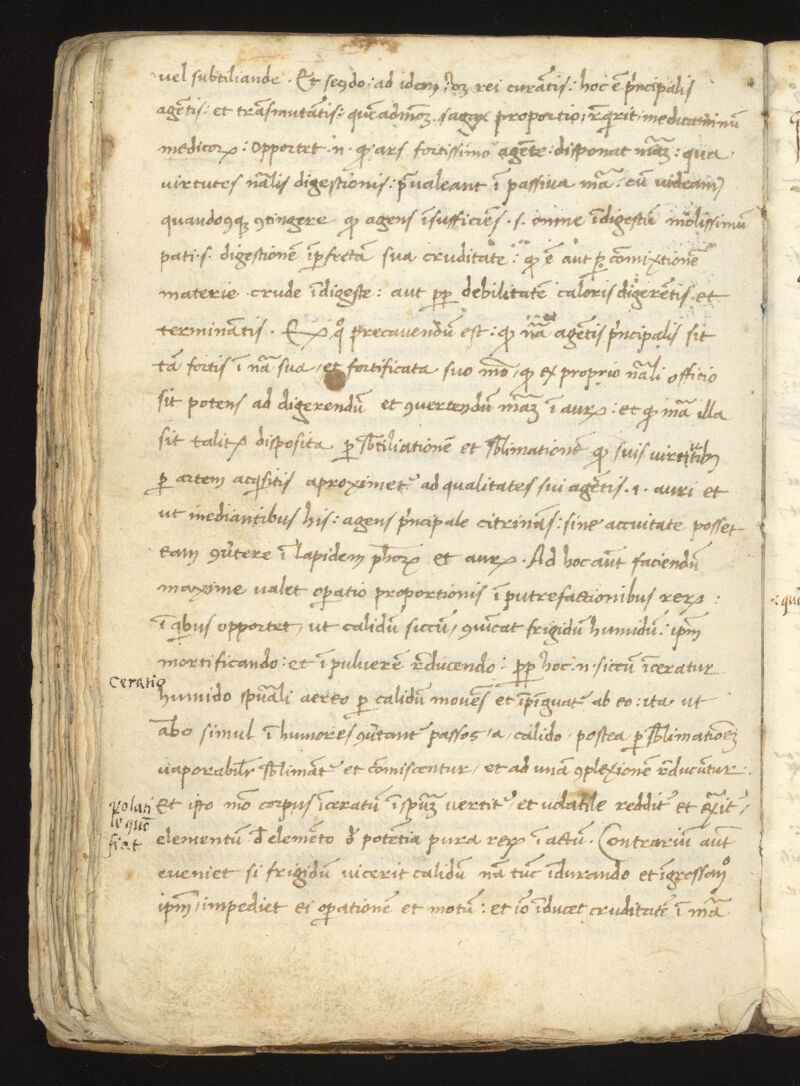 vel subtiliande. Et secūdo: ad idem: rei curātis: hoc ē p̄ncipalis
agētis: et trāsmutātis: quēadmoꝫ sagax proportio, req̄rit, medicaminū
medicorꝝ: Opportet .n. qꝫ ars fortissimo agēte: disponat mā̄ꝫ: qua
virtutes nālis digestionis: p̄ualeant ī passiua mā: cū videam̄
quandoqꝫ ꝯtingere qꝫ agens īsufficiēs .s. omne īdigestū mollissimū
pati .s. digestionē īperfectā sua cruditate: qꝫ ē aut ꝑ comixtionē
materie crude īdigeste: aut ꝓp̄ debilitatē caloris digerētis et
terminātis. Ex q̊ precavendū est: qꝫ nā agētis p̄ncipalis sit
tā fortis ī nā sua, et fortificata suo mō, qꝫ ex proprio nāli officio
sit potens ad digerendū et ꝯvertendū mā̄ꝫ ī aurꝫ: et qꝫ mā illa
sit talitꝫ disposita ꝑ sb̄tiliationē et sb̄limationē qꝫ suis virtutibꝫ
ꝑ artem acq̄sitis aproximet̄ ad qualitates sui agētis .i. auri et
ut mediantibus his: agens p̄ncipale citrinās: sine acuitate posset
eam ꝯūtere ī lapidem ph̄orꝝ et aurꝫ. Ad hoc aūt faciendū
maxime valet oꝑatio proportionis ī putrefactionibus rerꝝ:
ī q̄bus opportet, ut calidū siccū, ꝯuīcat frigidū humidū: ip̄m
mortificando: et ī pulverē reducendo: ꝓp̄ hoc .n. siccū īceratur
humido sp̄uali aereo ꝑ calidū movēs et īpīguat̄ ab eo: ita ut
abo simul ī humores ꝯūtant̄ passos, a, calido, postea ꝑ sb̄limationē
uaporabilr̄ sb̄limāt̄ et comiscentur, et ad unā ꝯplexionē reducūtur.
Et isto mō corpus īceratū ī sp̄ū vertit̄ et volatile reddit̄ et exit̄,
elementū de elemēto de potētia pura rerꝝ ī actū. Contrariū aūt
eveniet si frigidū vicerit calidū nā tūc īdurando et īgrossando
ip̄m, impediet ei oꝑationē et motū: et iō īducet cruditatē ī mā
Ceratio
volati
le quō
fiat